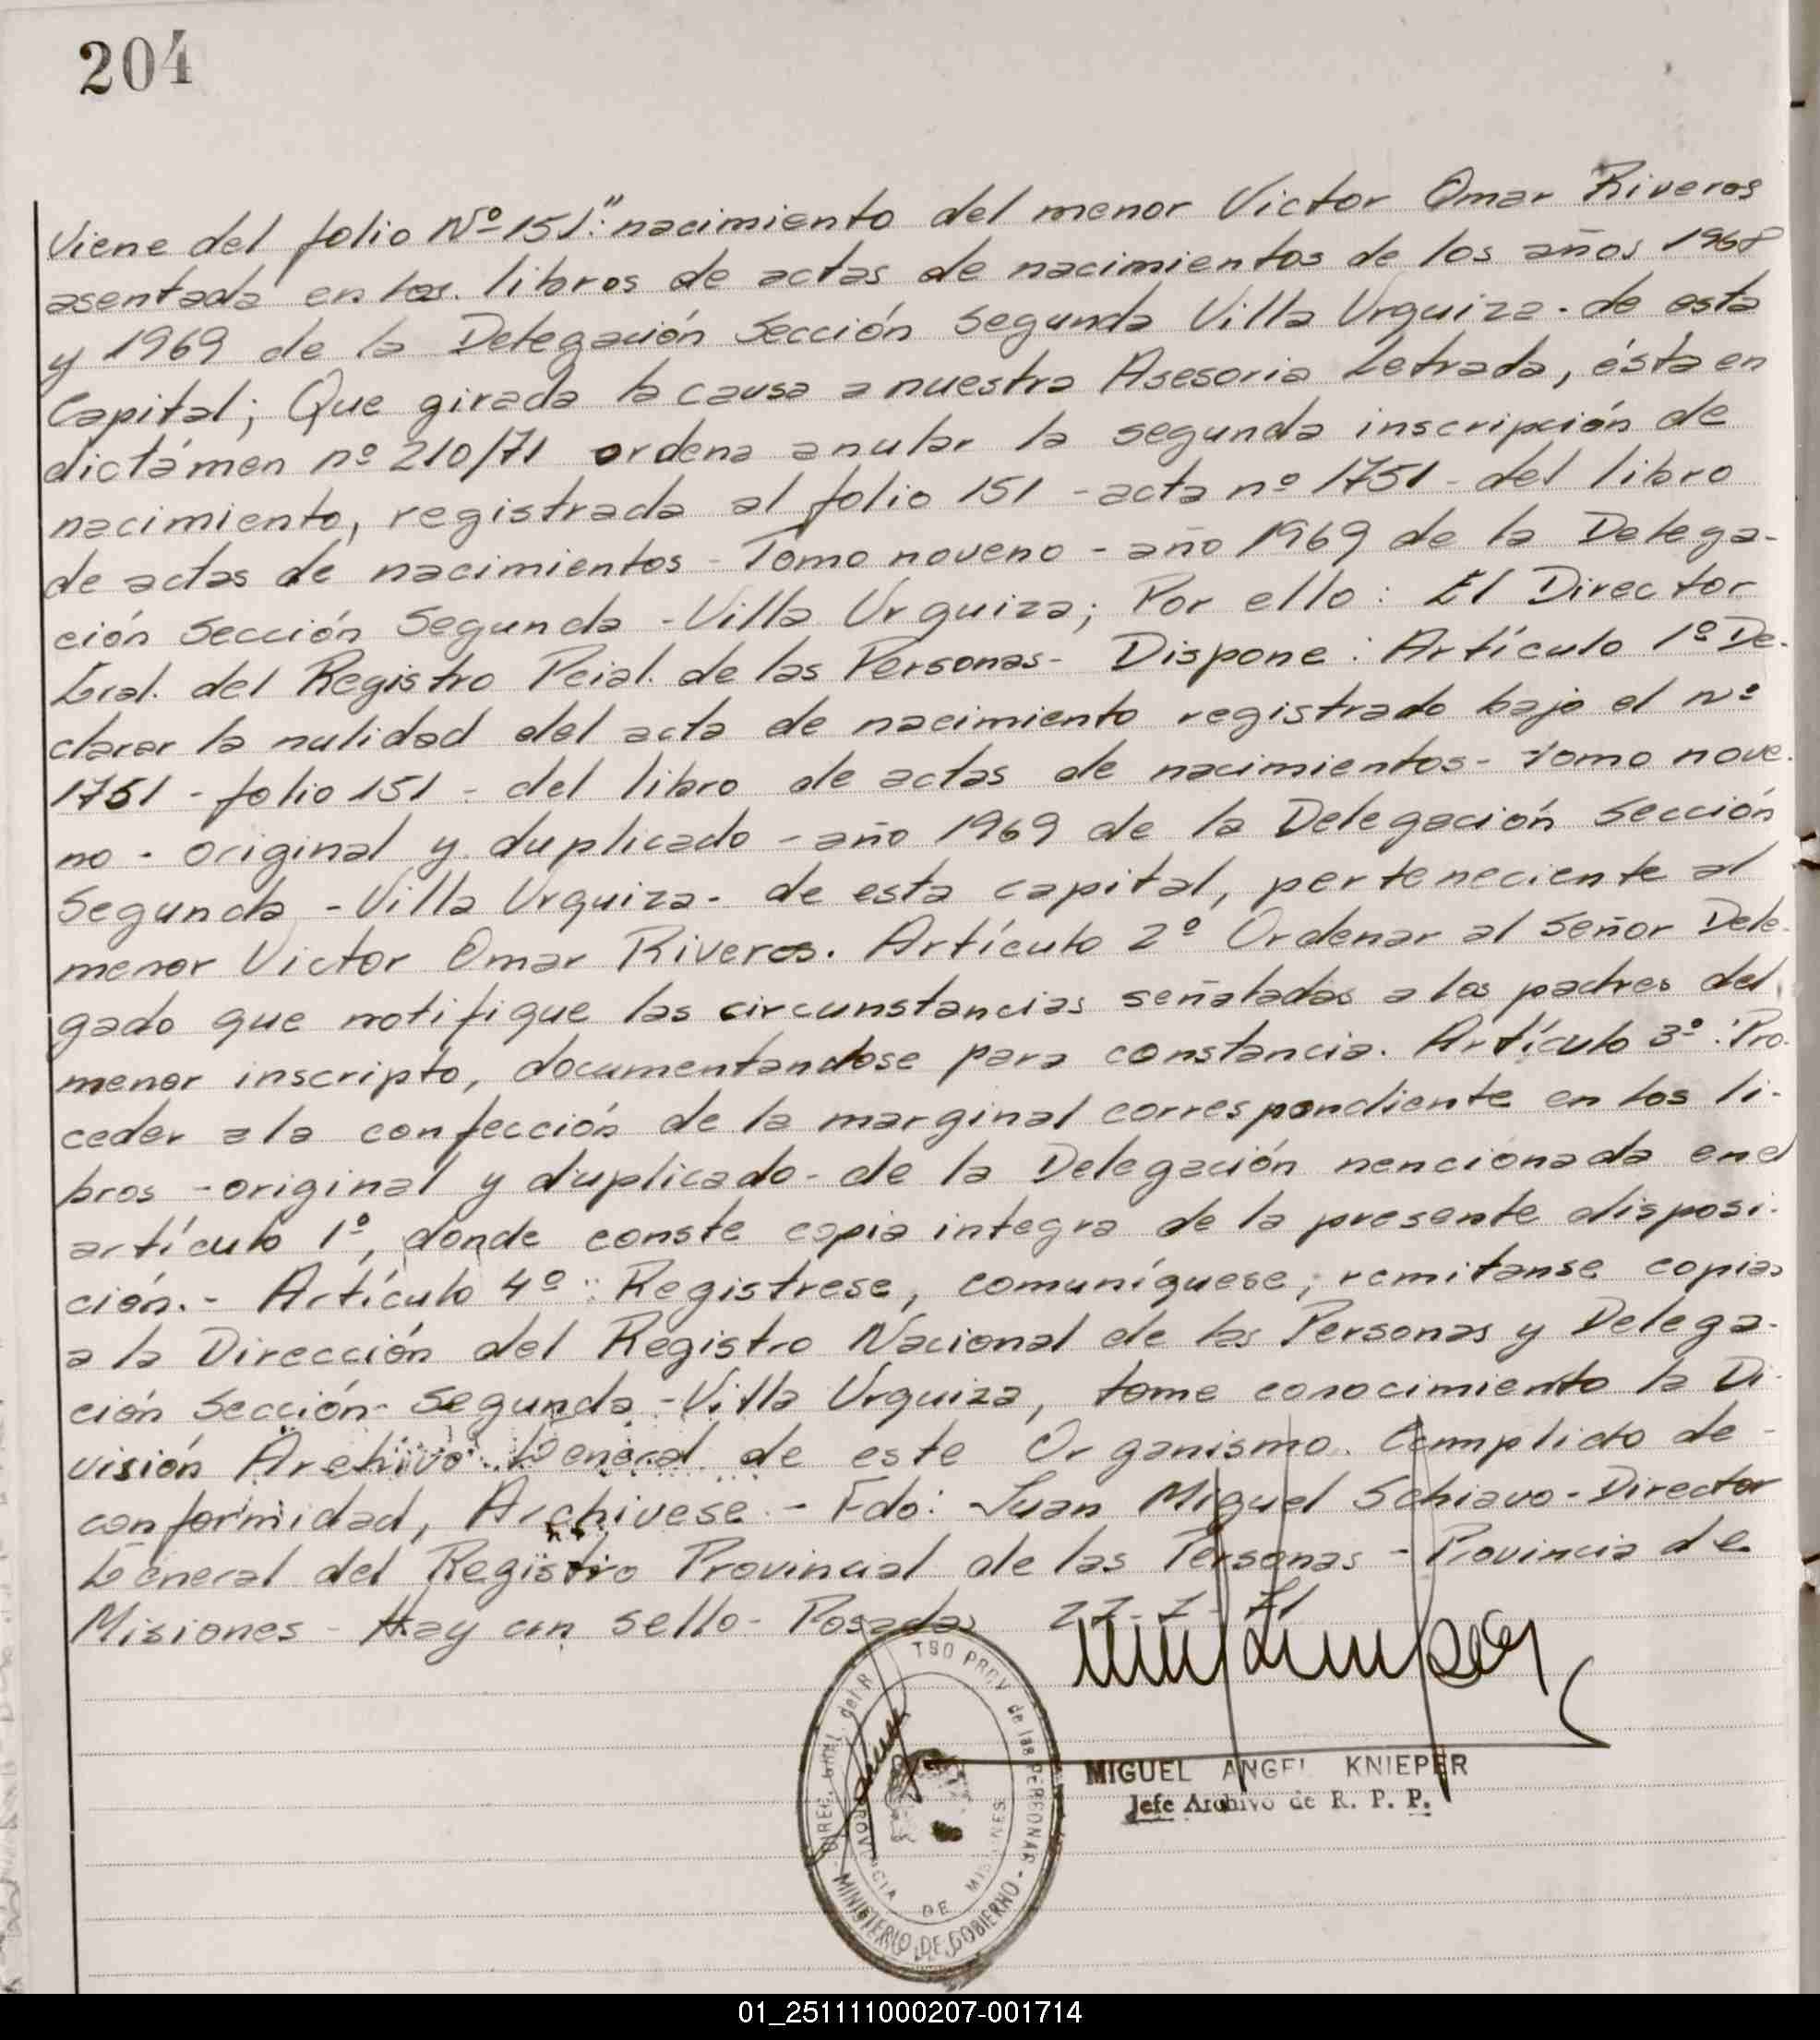 204
Viene del folio Nº 151:" nacimiento del menor Victor Omar Riveros
asentada en los. libros de actas de nacimientos de los años 1968
y 1969 de la Delegación Sección Segunda Villa Urquiza - de esta
Capital; Que girada la causa a nuestra Asesoria Letrada, ésta en
dictámen nº 210/71 ordena anular la segunda inscripción de
nacimiento, registrada al folio 151 - acta nº 1751 - del libro
de actas de nacimientos - Tomo noveno - año 1969 de la Delega-
ción Sección Segunda - Villa Urquiza; Por ello: El Director
Gral. del Registro Pcial. de las Personas - Dispone: Artículo 1º De-
clarar la nulidad del acta de nacimiento registrado bajo el nº
1751 - folio 151 - del libro de actas de nacimientos - tomo nove-
no - original y duplicado - año 1969 de la Delegación Sección
Segunda - Villa Urquiza - de esta capital, perteneciente al
menor Victor Omar Riveros. Artículo 2º Ordenar al señor Dele-
gado que notifique las circunstancias señaladas a los padres del
menor inscripto, documentandose para constancia. Artículo 3º: Pro-
ceder a la confección de la marginal correspondiente en los li-
bros - original y duplicado - de la Delegación nencionada en el
artículo 1º, donde conste copia integra de la presente disposi-
ción. - Artículo 4º: Registrese, comuníquese, remitanse copias
a la Dirección del Registro Nacional de las Personas y Delega-
ción Sección - Segunda - Villa Urquiza, tome conocimiento la Di-
visión Archivo General de este Organismo. Cumplido de -
conformidad, Archivese. - Fdo: Juan Miguel Schiavo - Director
General del Registro Provincial de las Personas - Provincia de
Misiones - Hay un sello - Posadas
MIGUEL ANGEL KNIEPER
Jefe Archivo de R. P. P.
PROV. de las PERSONAS - MINISTERIO DE GOBIERNO -
PROVINCIA DE MISIONES
01_251111000207-001714